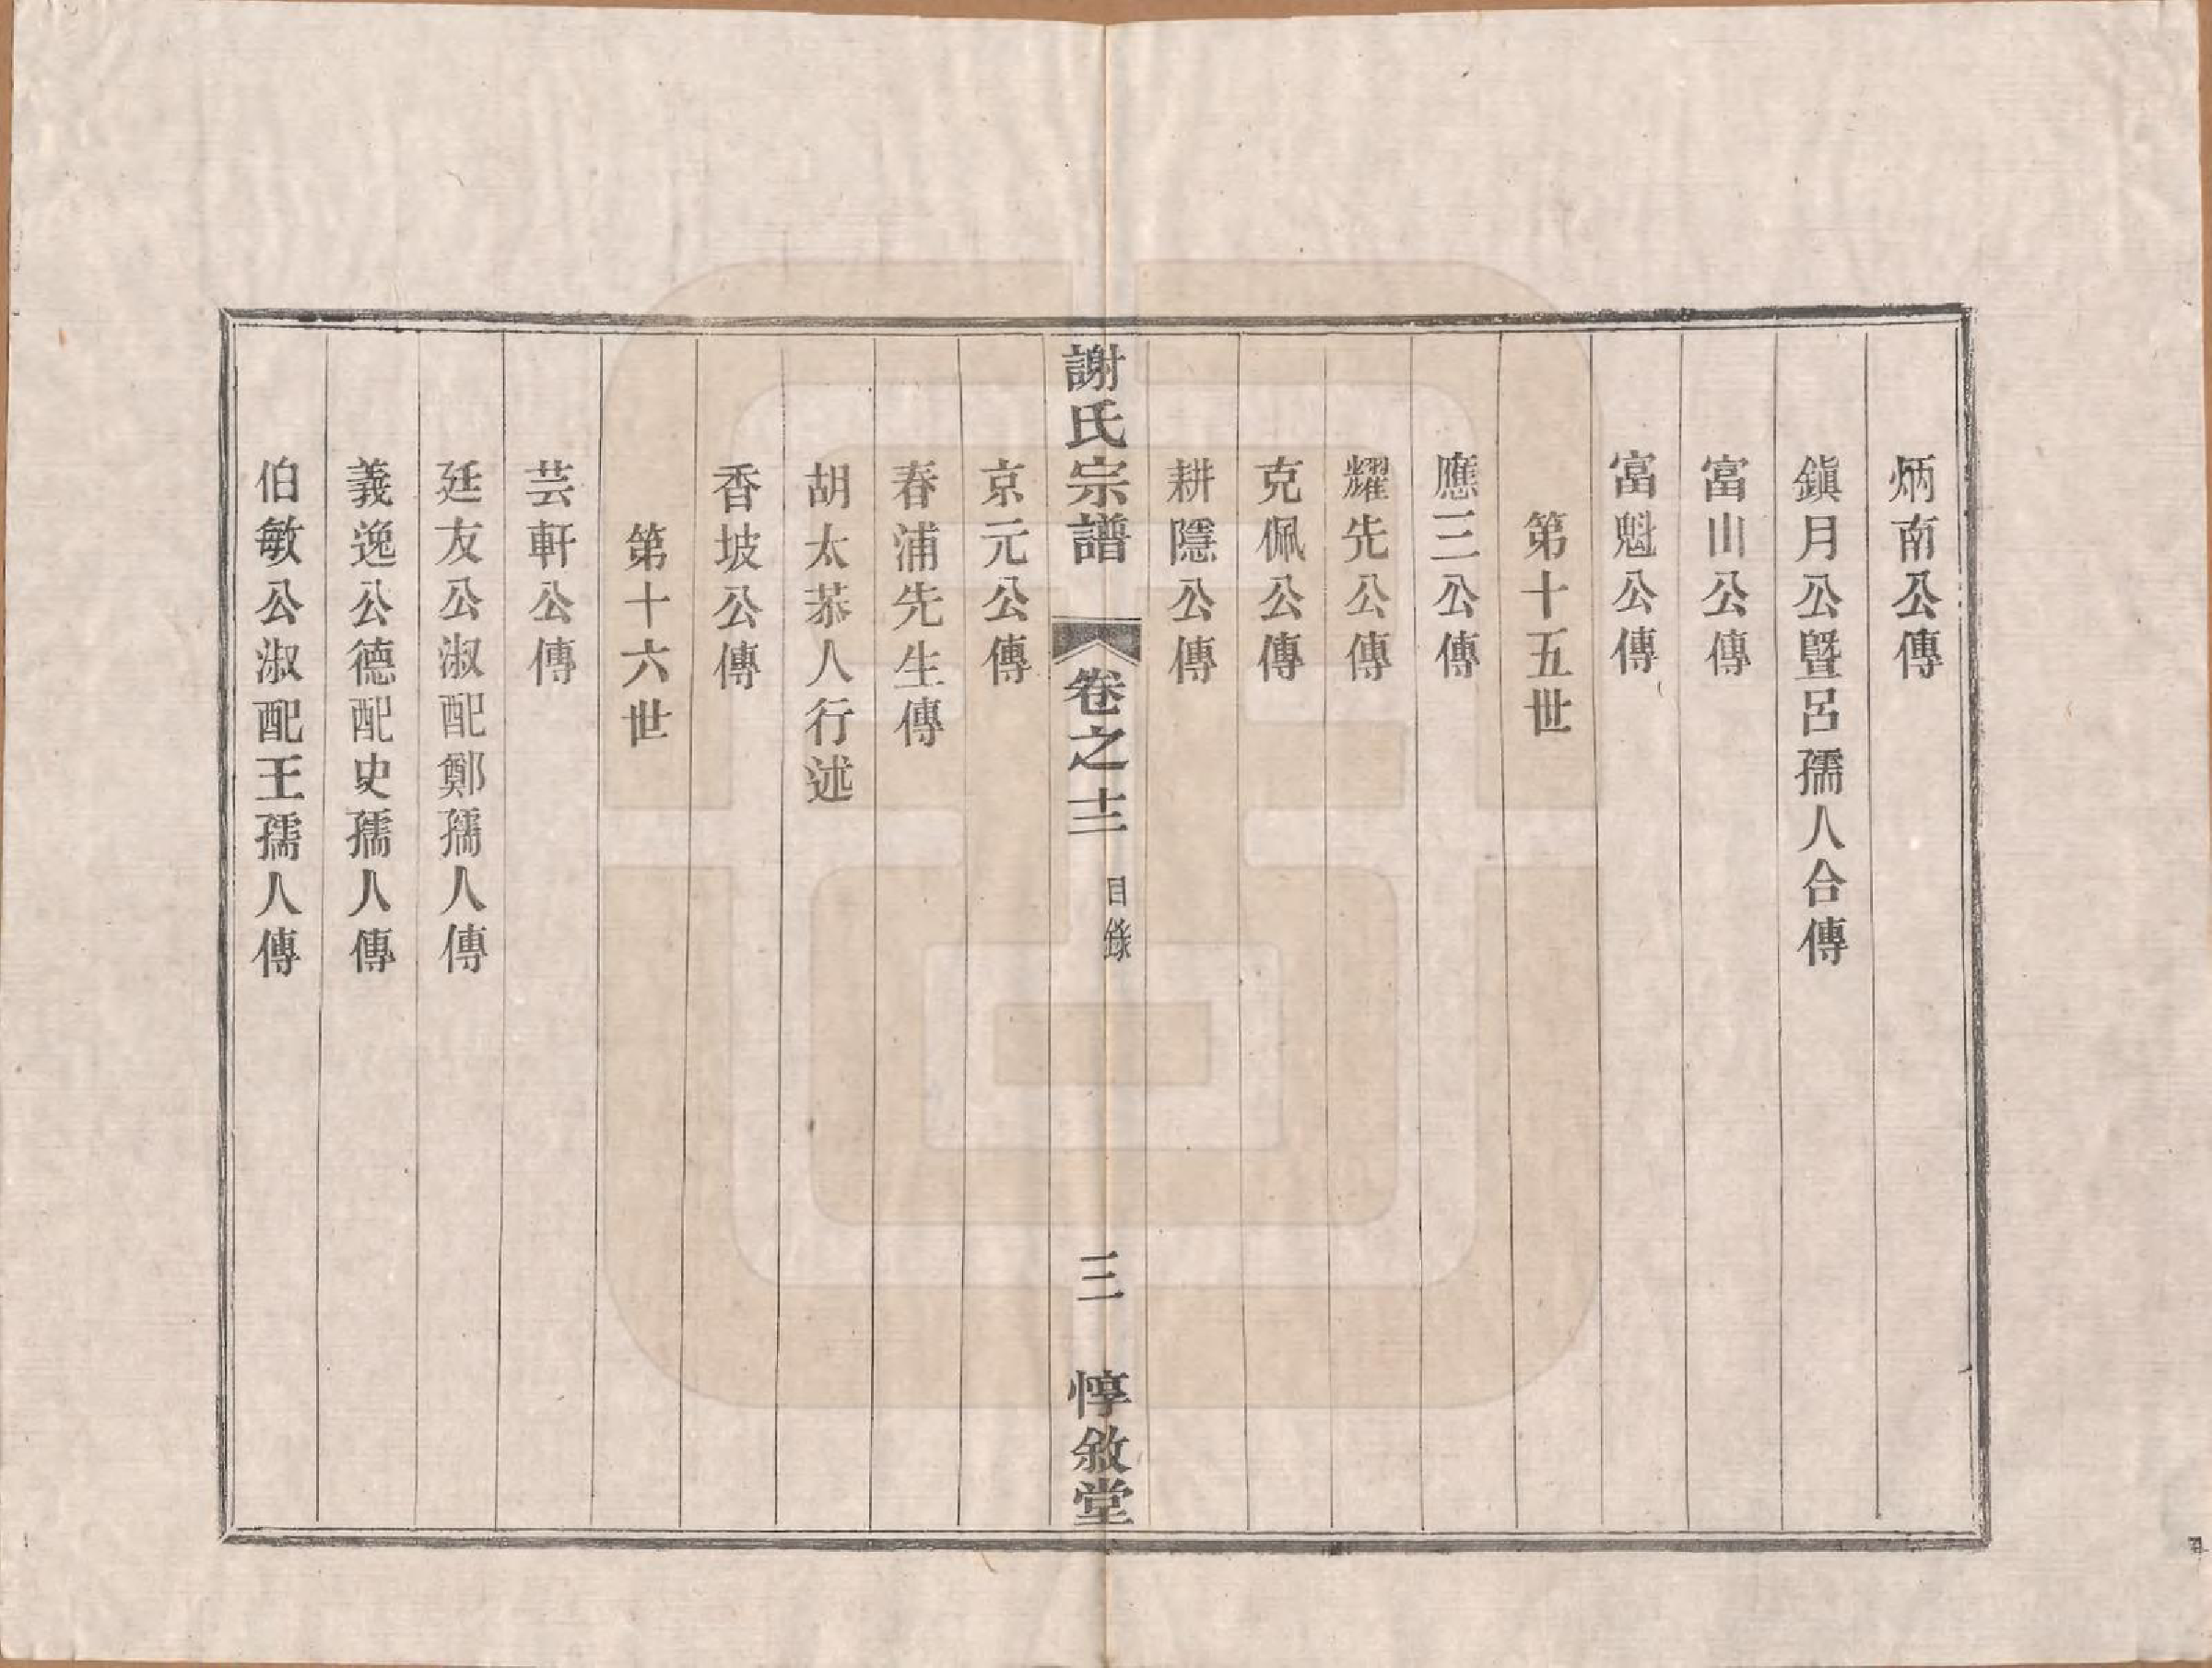 炳南公傳
鎭月公曁呂孺人合傳
富山公傳
富魁公傳
第十五世
應三公傳
耀先公傳
克佩公傳
耕隱公傳
謝氏宗譜
卷之十二
目錄
三
惇敘堂
京元公傳
春浦先生傳
胡太恭人行述
香坡公傳
第十六世
芸軒公傳
廷友公淑配鄭孺人傳
義逸公德配史孺人傳
伯敏公淑配王孺人傳